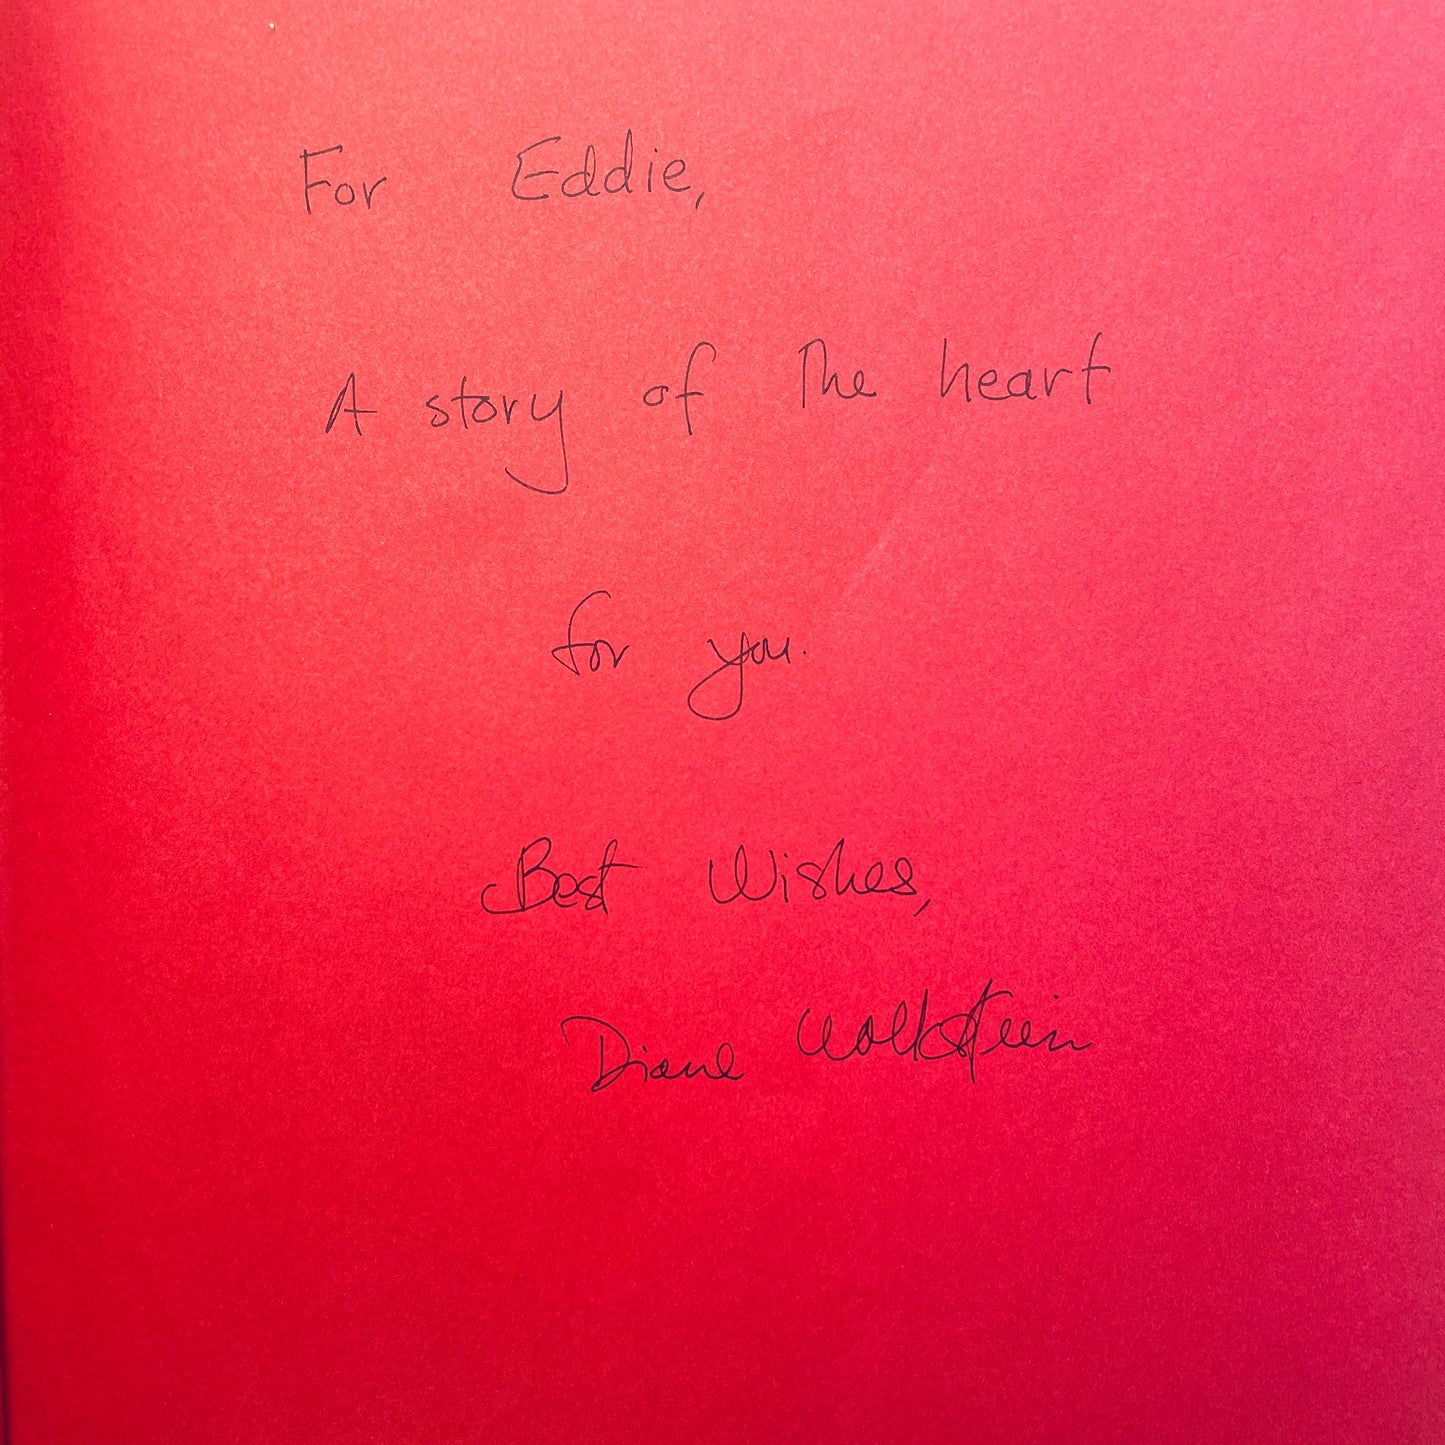 For Eddie,
A story of The heart
for you.
Best Wishes,
Diane Wolkstein